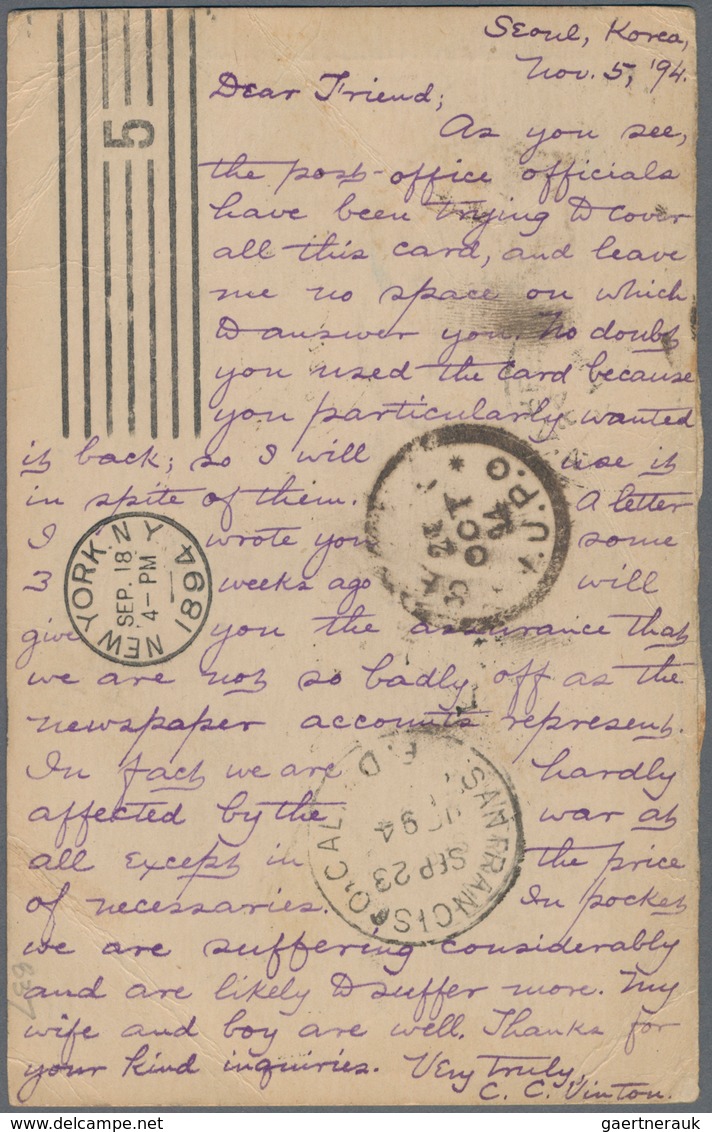 Seoul, Korea,
Nov. 5, '94.
Dear Friend;
As you see,
the post-office officials
have been trying to cover
all this card, and leave
me no space on which
to answer you. No doubt
you used the card because
you particularly wanted
it back; so I will use it
in spite of them. A letter
I wrote you some
3 weeks ago will
give you the assurance that
we are not so badly off as the
newspaper accounts represent.
In fact we are hardly
affected by the war at
all except in the price
of necessaries. In pocket
we are suffering considerably
and are likely to suffer more. My
wife and boy are well. Thanks for
your kind inquiries. Very truly,
C. C. Vinton.
5
NEW YORK N Y
SEP. 18
4-PM
1894
OCT
SAN FRANCISCO, CAL.
SEP 23
94
637
gaertnerauk